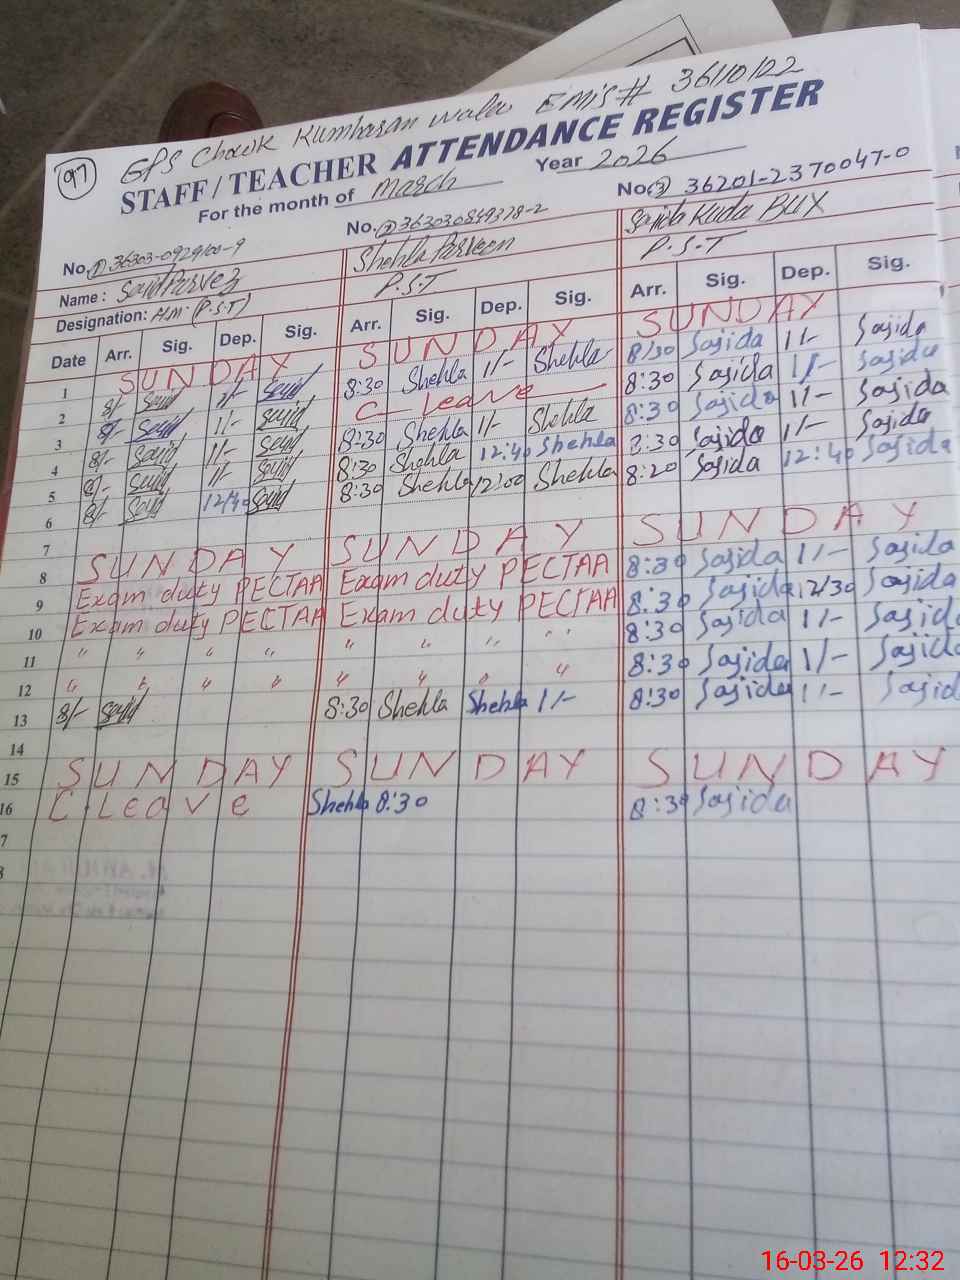 97
GPS Chowk Kumharan Wala EMiS# 36110122
STAFF / TEACHER ATTENDANCE REGISTER
For the month of March Year 2026
No. ① 36303-0929100-9 No. ② 363030849378-2 No. ③ 36201-2370047-0
Name: Sajid Parvez Shehla Parveen Sajida Kuda BUX
Designation: H.M. (P.S.T) P.S.T P.S.T
Date Arr. Sig. Dep. Sig. Arr. Sig. Dep. Sig. Arr. Sig. Dep. Sig.
1 SUNDAY SUNDAY SUNDAY
2 8/- Sajid 1/- Sajid 8:30 Shehla 1/- Shehla 8/30 Sajida 1/- Sajida
3 8/- Sajid 1/- Sajid C- Leave 8:30 Sajida 1/- Sajida
4 8/- Sajid 1/- Sajid 8:30 Shehla 1/- Shehla 8:30 Sajida 1/- Sajida
5 8/- Sajid 1/- Sajid 8:30 Shehla 12:40 Shehla 8:30 Sajida 1/- Sajida
6 8/- Sajid 12/40 Sajid 8:30 Shehla 12:00 Shehla 8:20 Sajida 12:40 Sajida
7
8 SUNDAY SUNDAY SUNDAY
9 Exam duty PECTAA Exam duty PECTAA 8:30 Sajida 1/- Sajida
10 Exam duty PECTAA Exam duty PECTAA 8:30 Sajida 12/30 Sajida
11 " " " " " " " " 8:30 Sajida 1/- Sajida
12 " " " " " " " " 8:30 Sajida 1/- Sajida
13 8/- Sajid 8:30 Shehla Shehla 1/- 8:30 Sajida 1/- Sajid
14
15 SUNDAY SUNDAY SUNDAY
16 C. Leave Shehla 8:30 8:30 Sajida
7
16-03-26 12:32